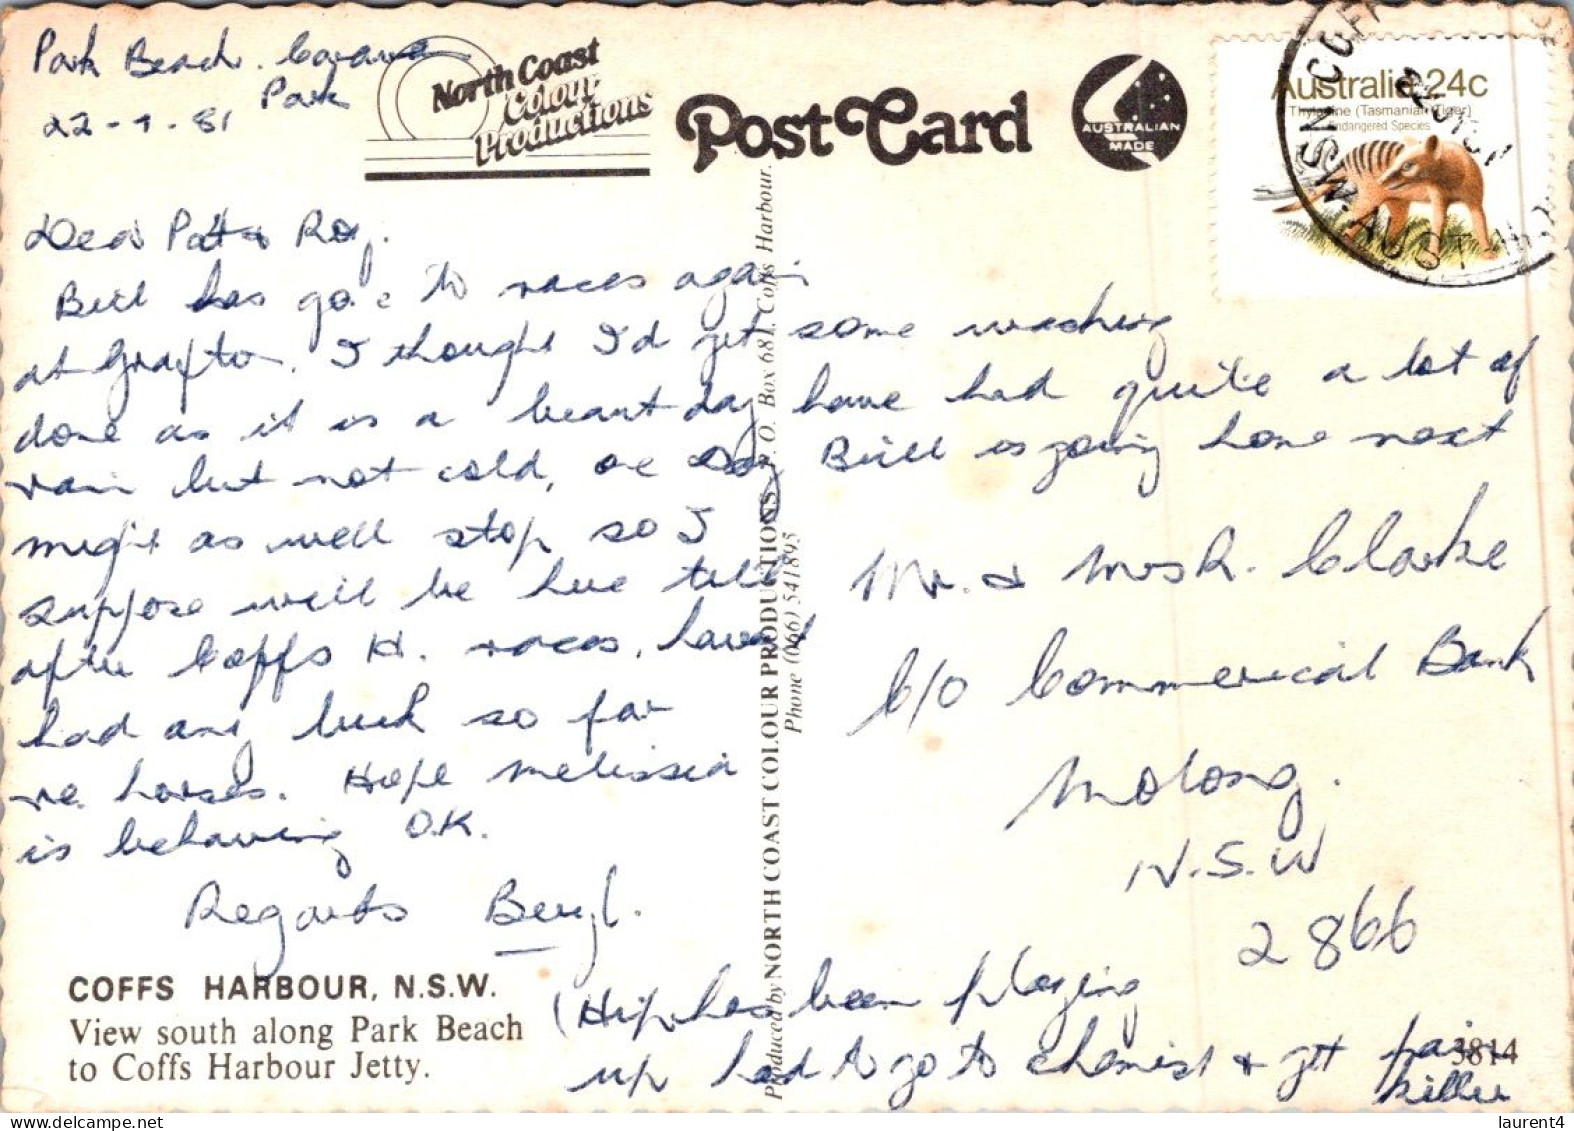 Park Beach. Caravan
Park
22-9-81
North Coast
Colour
Productions
PostCard
AUSTRALIAN
MADE
Australia 24c
Thylacine (Tasmanian Tiger)
Endangered Species
N.S.W. AUST
Dear Patt & Roy.
Bill has gone to races again
at Grafton. I thought I'd get some waching
done as it is a beaut day have had quite a lot of
rain but not cold, one Day Bill is going home next
might as well stop so I
suppose will be here till
after Coffs H. races, havent
had any luck so far
re horses. Hope Melissia
is behaving O.K.
Regards Beryl.
(Hip has been playing
up had to go to chemist & get pain
killer
Mr. & Mrs R. Clarke
C/o Commerical Bank
Molong.
N.S.W
2866
COFFS HARBOUR, N.S.W.
View south along Park Beach
to Coffs Harbour Jetty.
3814
Produced by NORTH COAST COLOUR PRODUCTIONS, P. O. Box 681, Coffs Harbour.
Phone (066) 541895
laurent4